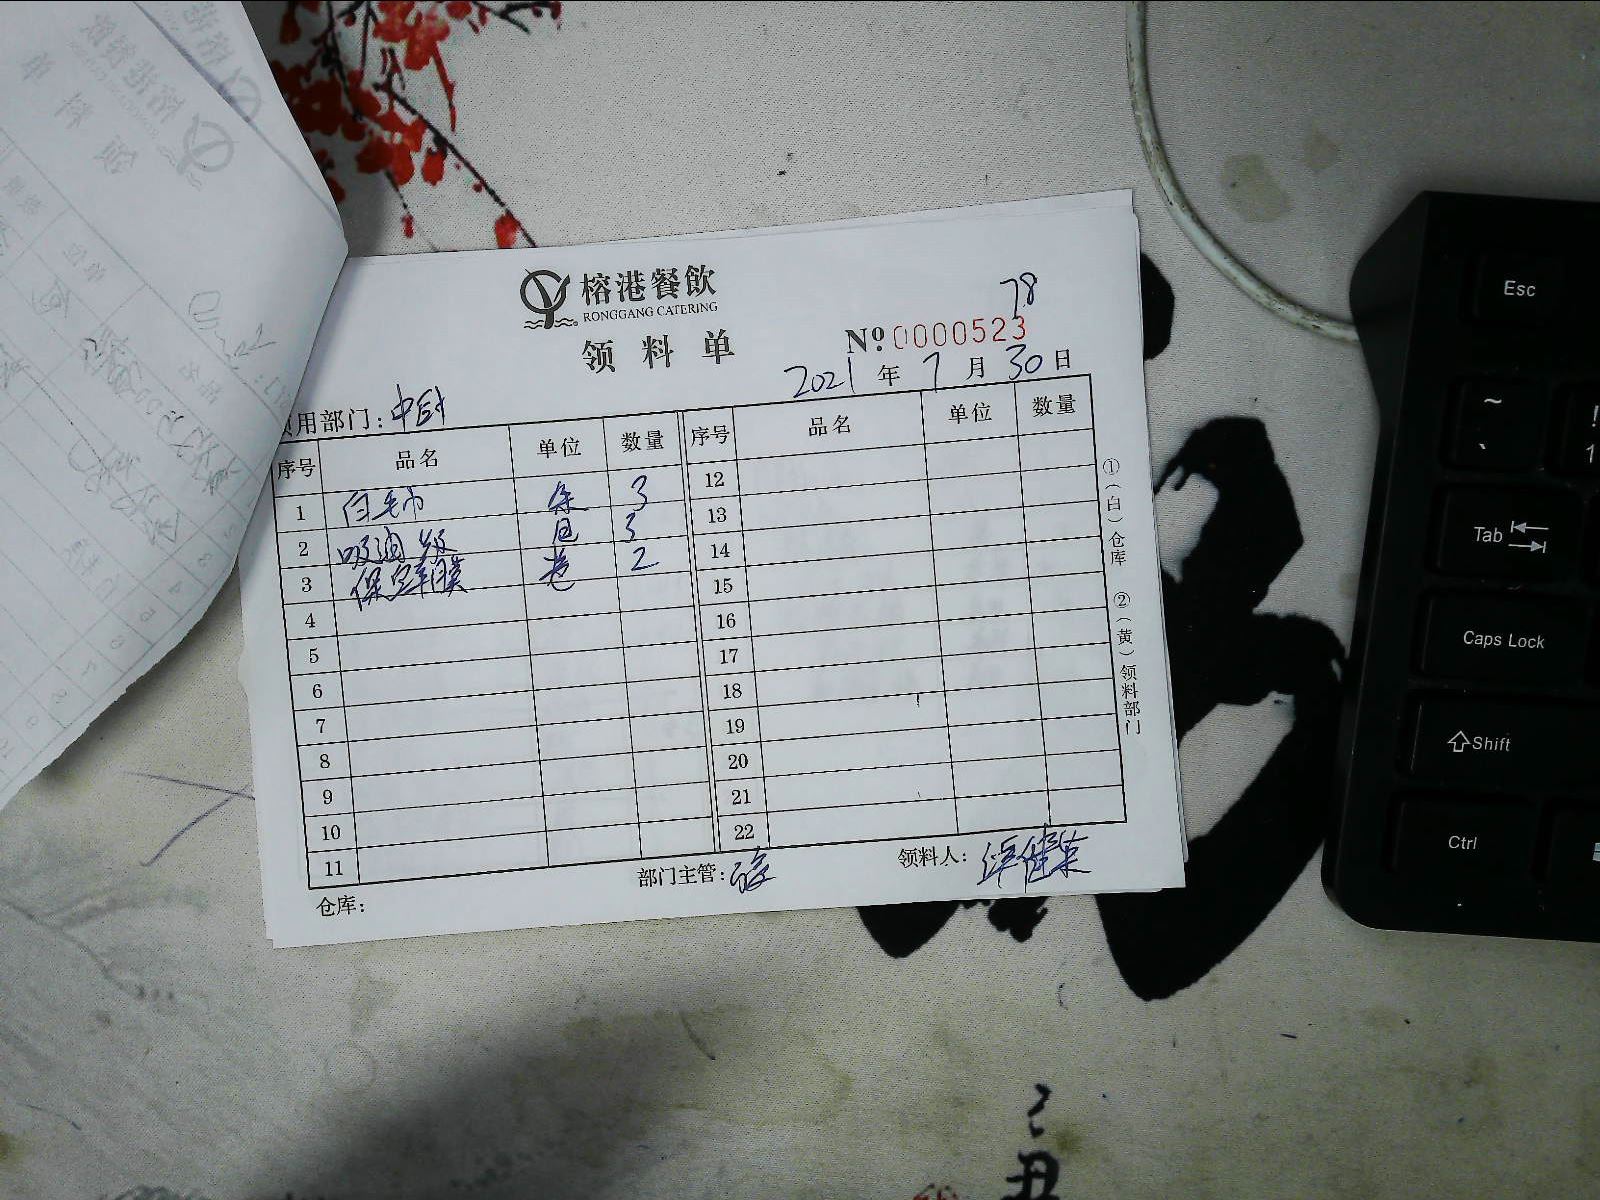 榕港餐飲
RONGGANG CATERING
领料单
78
№ 0000523
2021 年 7 月 30 日
用部门: 中厨
序号 品名 单位 数量 序号 品名 单位 数量
1 白毛巾 条 3 12
2 吸油纸 包 3 13
3 保鲜膜 卷 2 14
4 15
5 16
6 17
7 18
8 19
9 20
10 21
11 22
仓库: 部门主管: 领料人:
①(白)仓库 ②(黄)领料部门
Esc
~
`
!
1
Tab
Caps Lock
Shift
Ctrl
丑